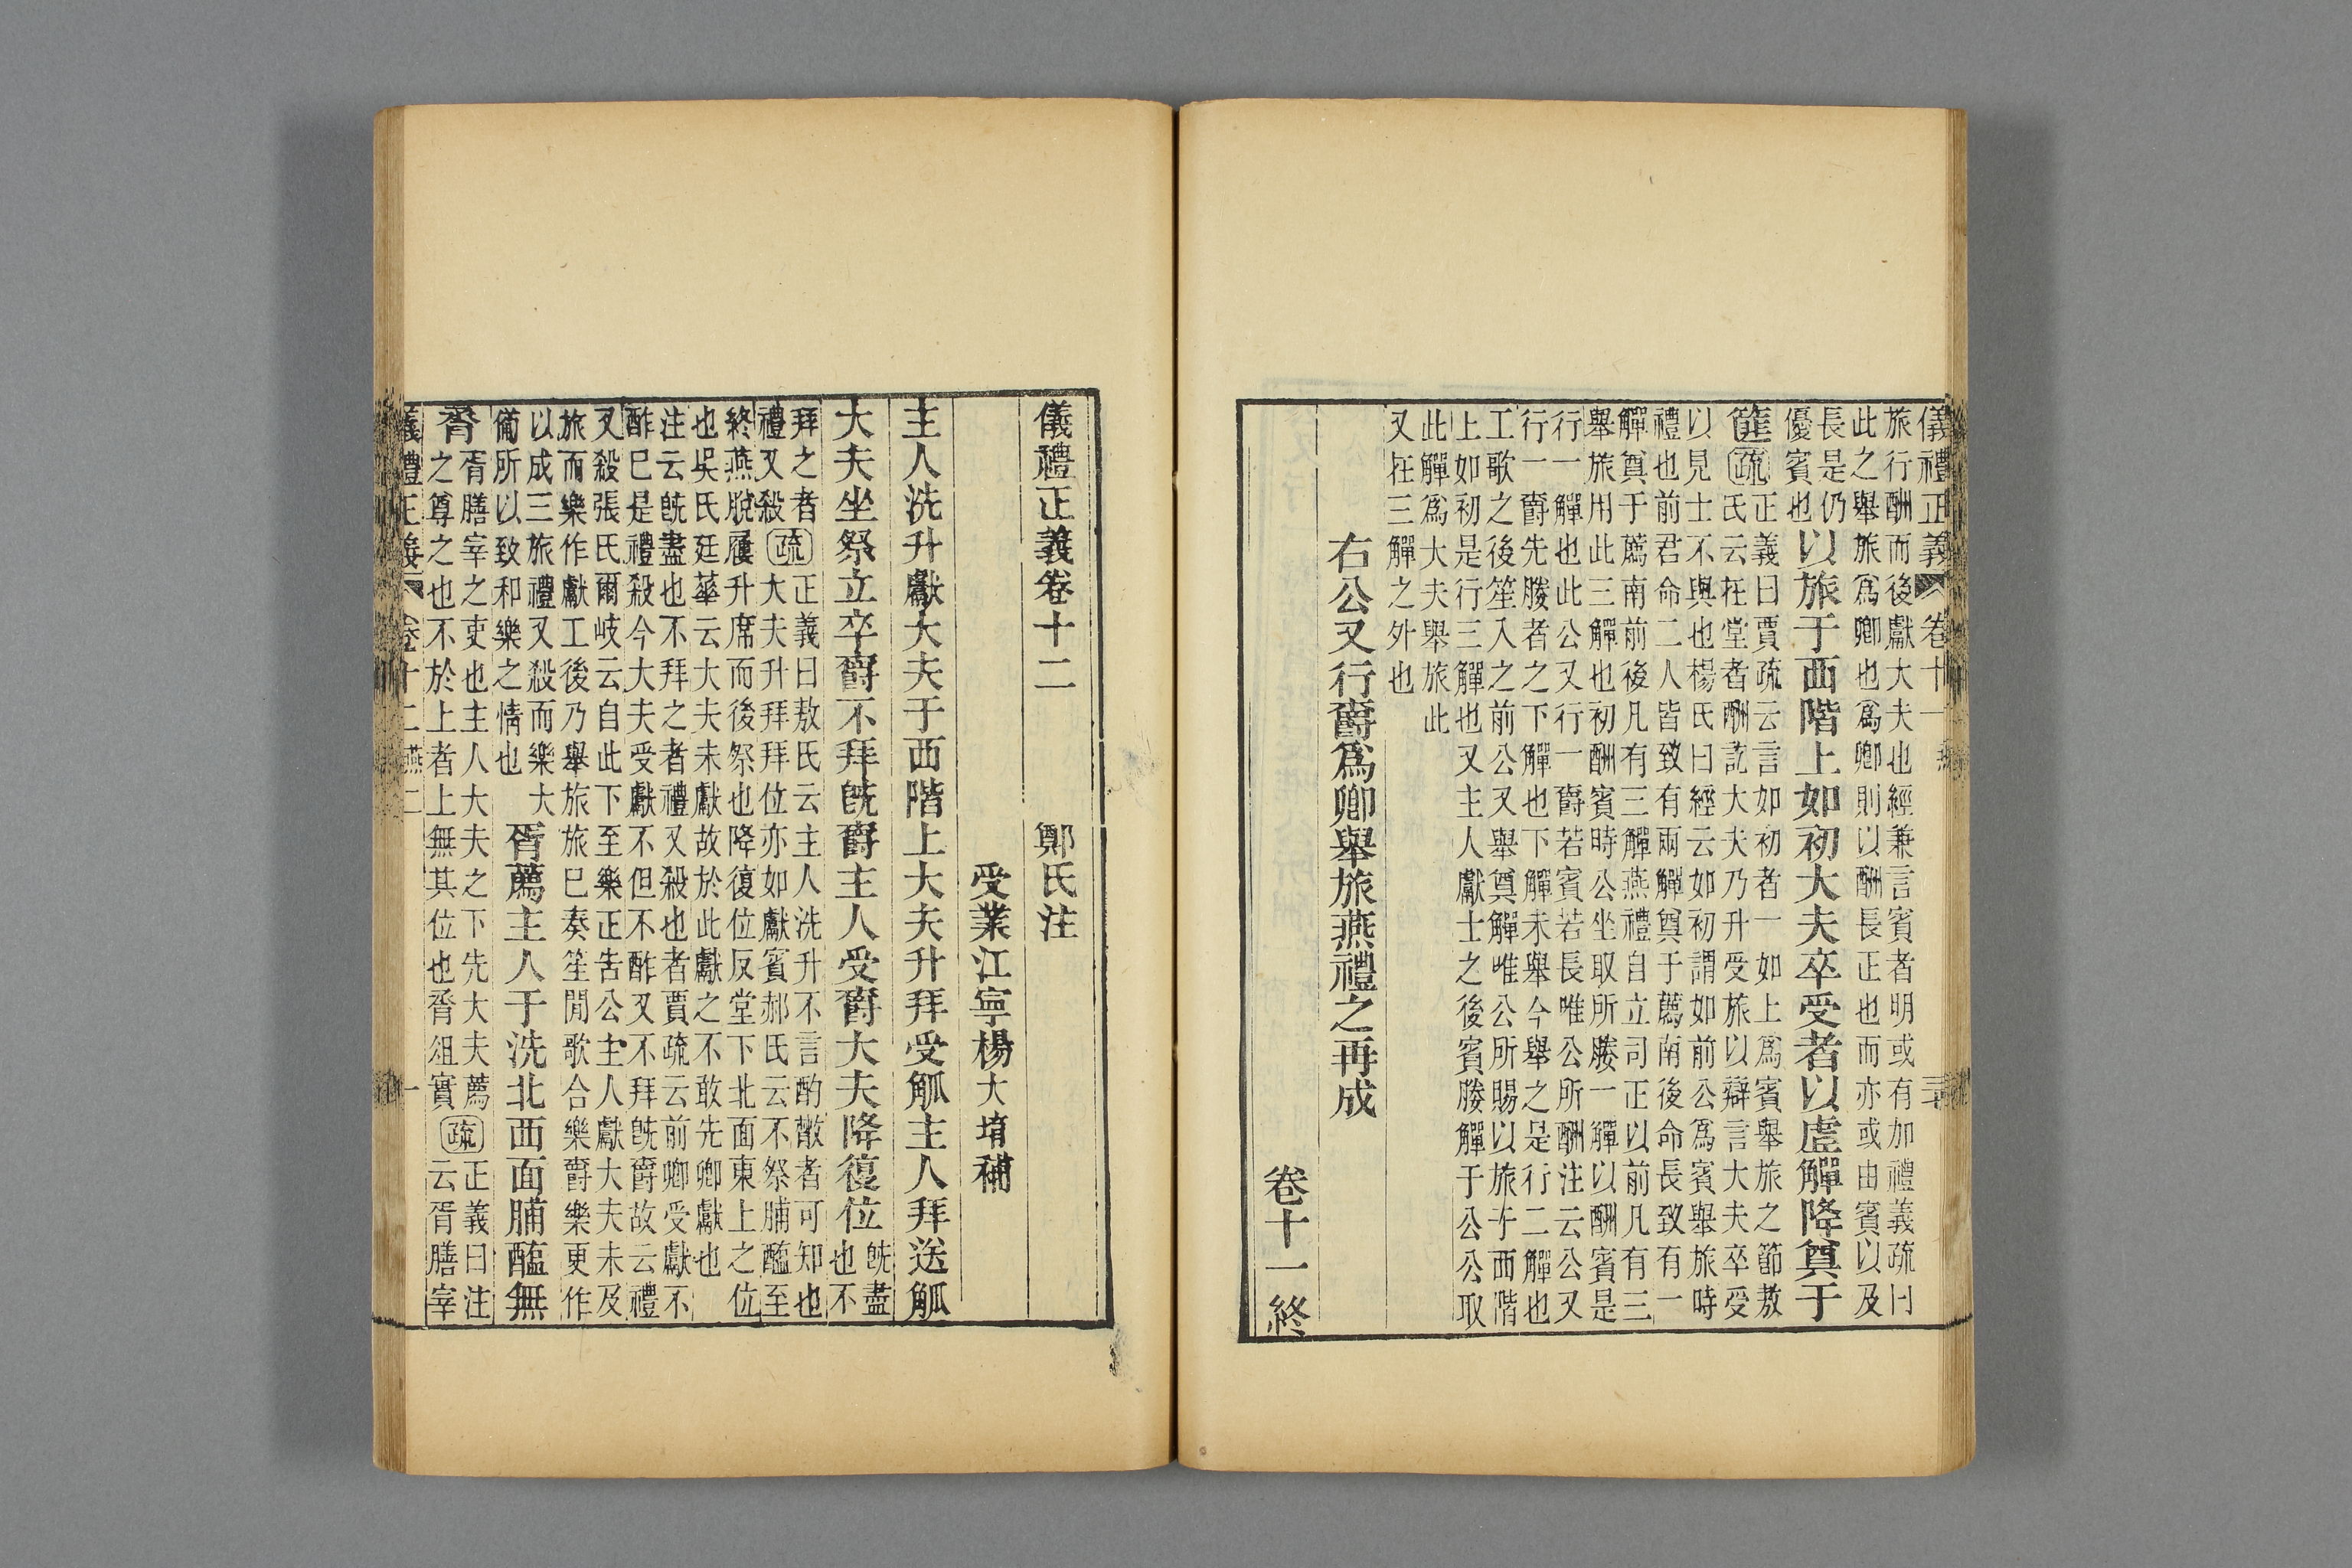 儀禮正義 卷十一 燕
旅行酬而後獻大夫也經兼言賓者明或有加禮義疏曰
此之舉旅爲卿也爲卿則以酬長正也而亦或由賓以及
長是仍
優賓也
以旅于西階上如初大夫卒受者以虛觶降奠于
篚
疏
正義曰賈疏云言如初者一如上爲賓舉旅之節敖
氏云在堂者酬訖大夫乃升受旅以辯言大夫卒受
以見士不與也楊氏曰經云如初謂如前公爲賓舉旅時
禮也前君命二人皆致有兩觶奠于薦南後命長致有一
觶奠于薦南前後凡有三觶燕禮自立司正以前凡有三
舉旅用此三觶也初酬賓時公坐取所媵一觶以酬賓是
行一觶也此公又行一爵若賓若長唯公所酬注云公又
行一爵先媵者之下觶也下觶未舉今舉之是行二觶也
工歌之後笙入之前公又舉奠觶唯公所賜以旅于西階
上如初是行三觶也又主人獻士之後賓媵觶于公公取
此觶爲大夫舉旅此
又在三觶之外也
右公又行爵爲卿舉旅燕禮之再成
卷十一終
儀禮正義卷十二 鄭氏注
受業江寧楊大堉補
主人洗升獻大夫于西階上大夫升拜受觚主人拜送觚
大夫坐祭立卒爵不拜旣爵主人受爵大夫降復位
旣盡
也不
拜之者
禮又殺
疏
正義曰敖氏云主人洗升不言酌散者可知也
大夫升拜拜位亦如獻賓郝氏云不祭脯醢至
終燕脫屨升席而後祭也降復位反堂下北面東上之位
也吳氏廷華云大夫未獻故於此獻之不敢先卿獻也
注云旣盡也不拜之者禮又殺也者賈疏云前卿受獻不
酢巳是禮殺今大夫受獻不但不酢又不拜旣爵故云禮
又殺張氏爾岐云自此下至樂正告公主人獻大夫未及
旅而樂作獻工後乃舉旅旅巳奏笙閒歌合樂爵樂更作
以成三旅禮又殺而樂大
備所以致和樂之情也
胥薦主人于洗北西面脯醢無
脀
胥膳宰之吏也主人大夫之下先大夫薦
之尊之也不於上者上無其位也脀俎實
疏
正義曰注
云胥膳宰
儀禮正義 卷十二 燕二 一